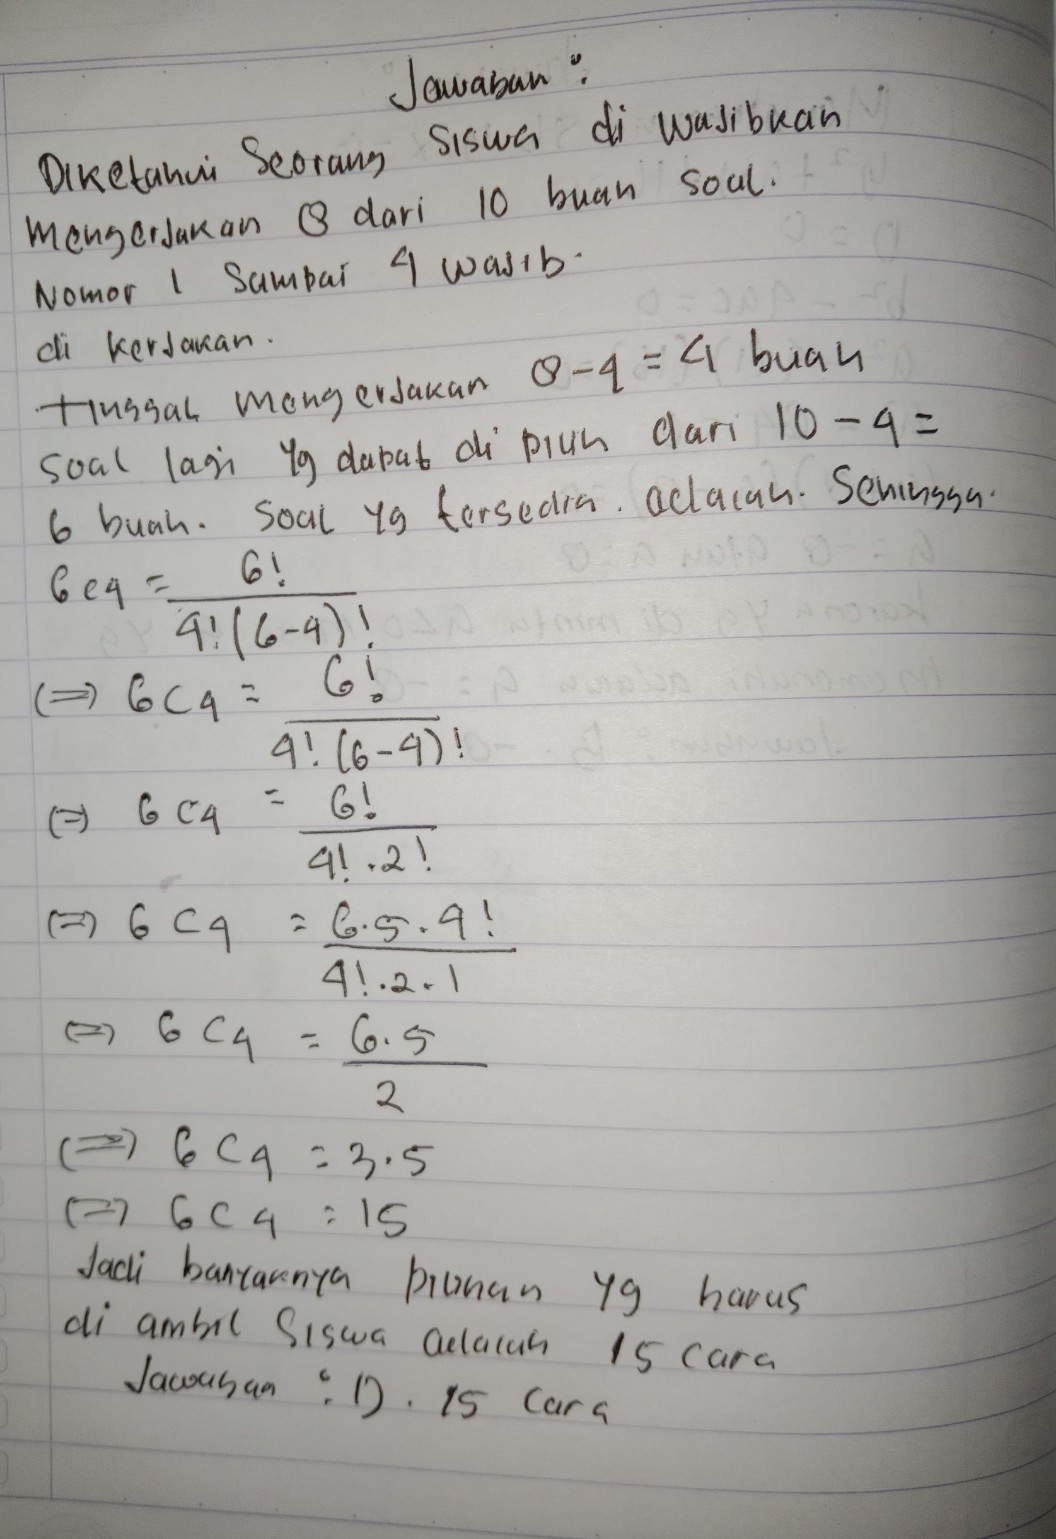 Jawaban :
Diketahui Seorang Siswa di wajibkan
mengerjakan 8 dari 10 buah soal.
Nomor 1 Sampai 4 wajib.
di kerjakan.
tinggal mengerjakan 8-4 = 4 buah
soal lagi yg dapat di pilih dari 10-4=
6 buah. Soal yg tersedia. adalah. Sehingga.
6C4 = 6!
4!(6-4)!
(=) 6C4 = 6!
4!(6-4)!
(=) 6C4 = 6!
4!.2!
(=) 6C4 = 6.5.4!
4!.2.1
(=) 6C4 = 6.5
2
(=) 6C4 = 3.5
(=) 6C4 = 15
Jadi banyaknya pilihan yg harus
di ambil Siswa adalah 15 cara
Jawaban : D. 15 Cara